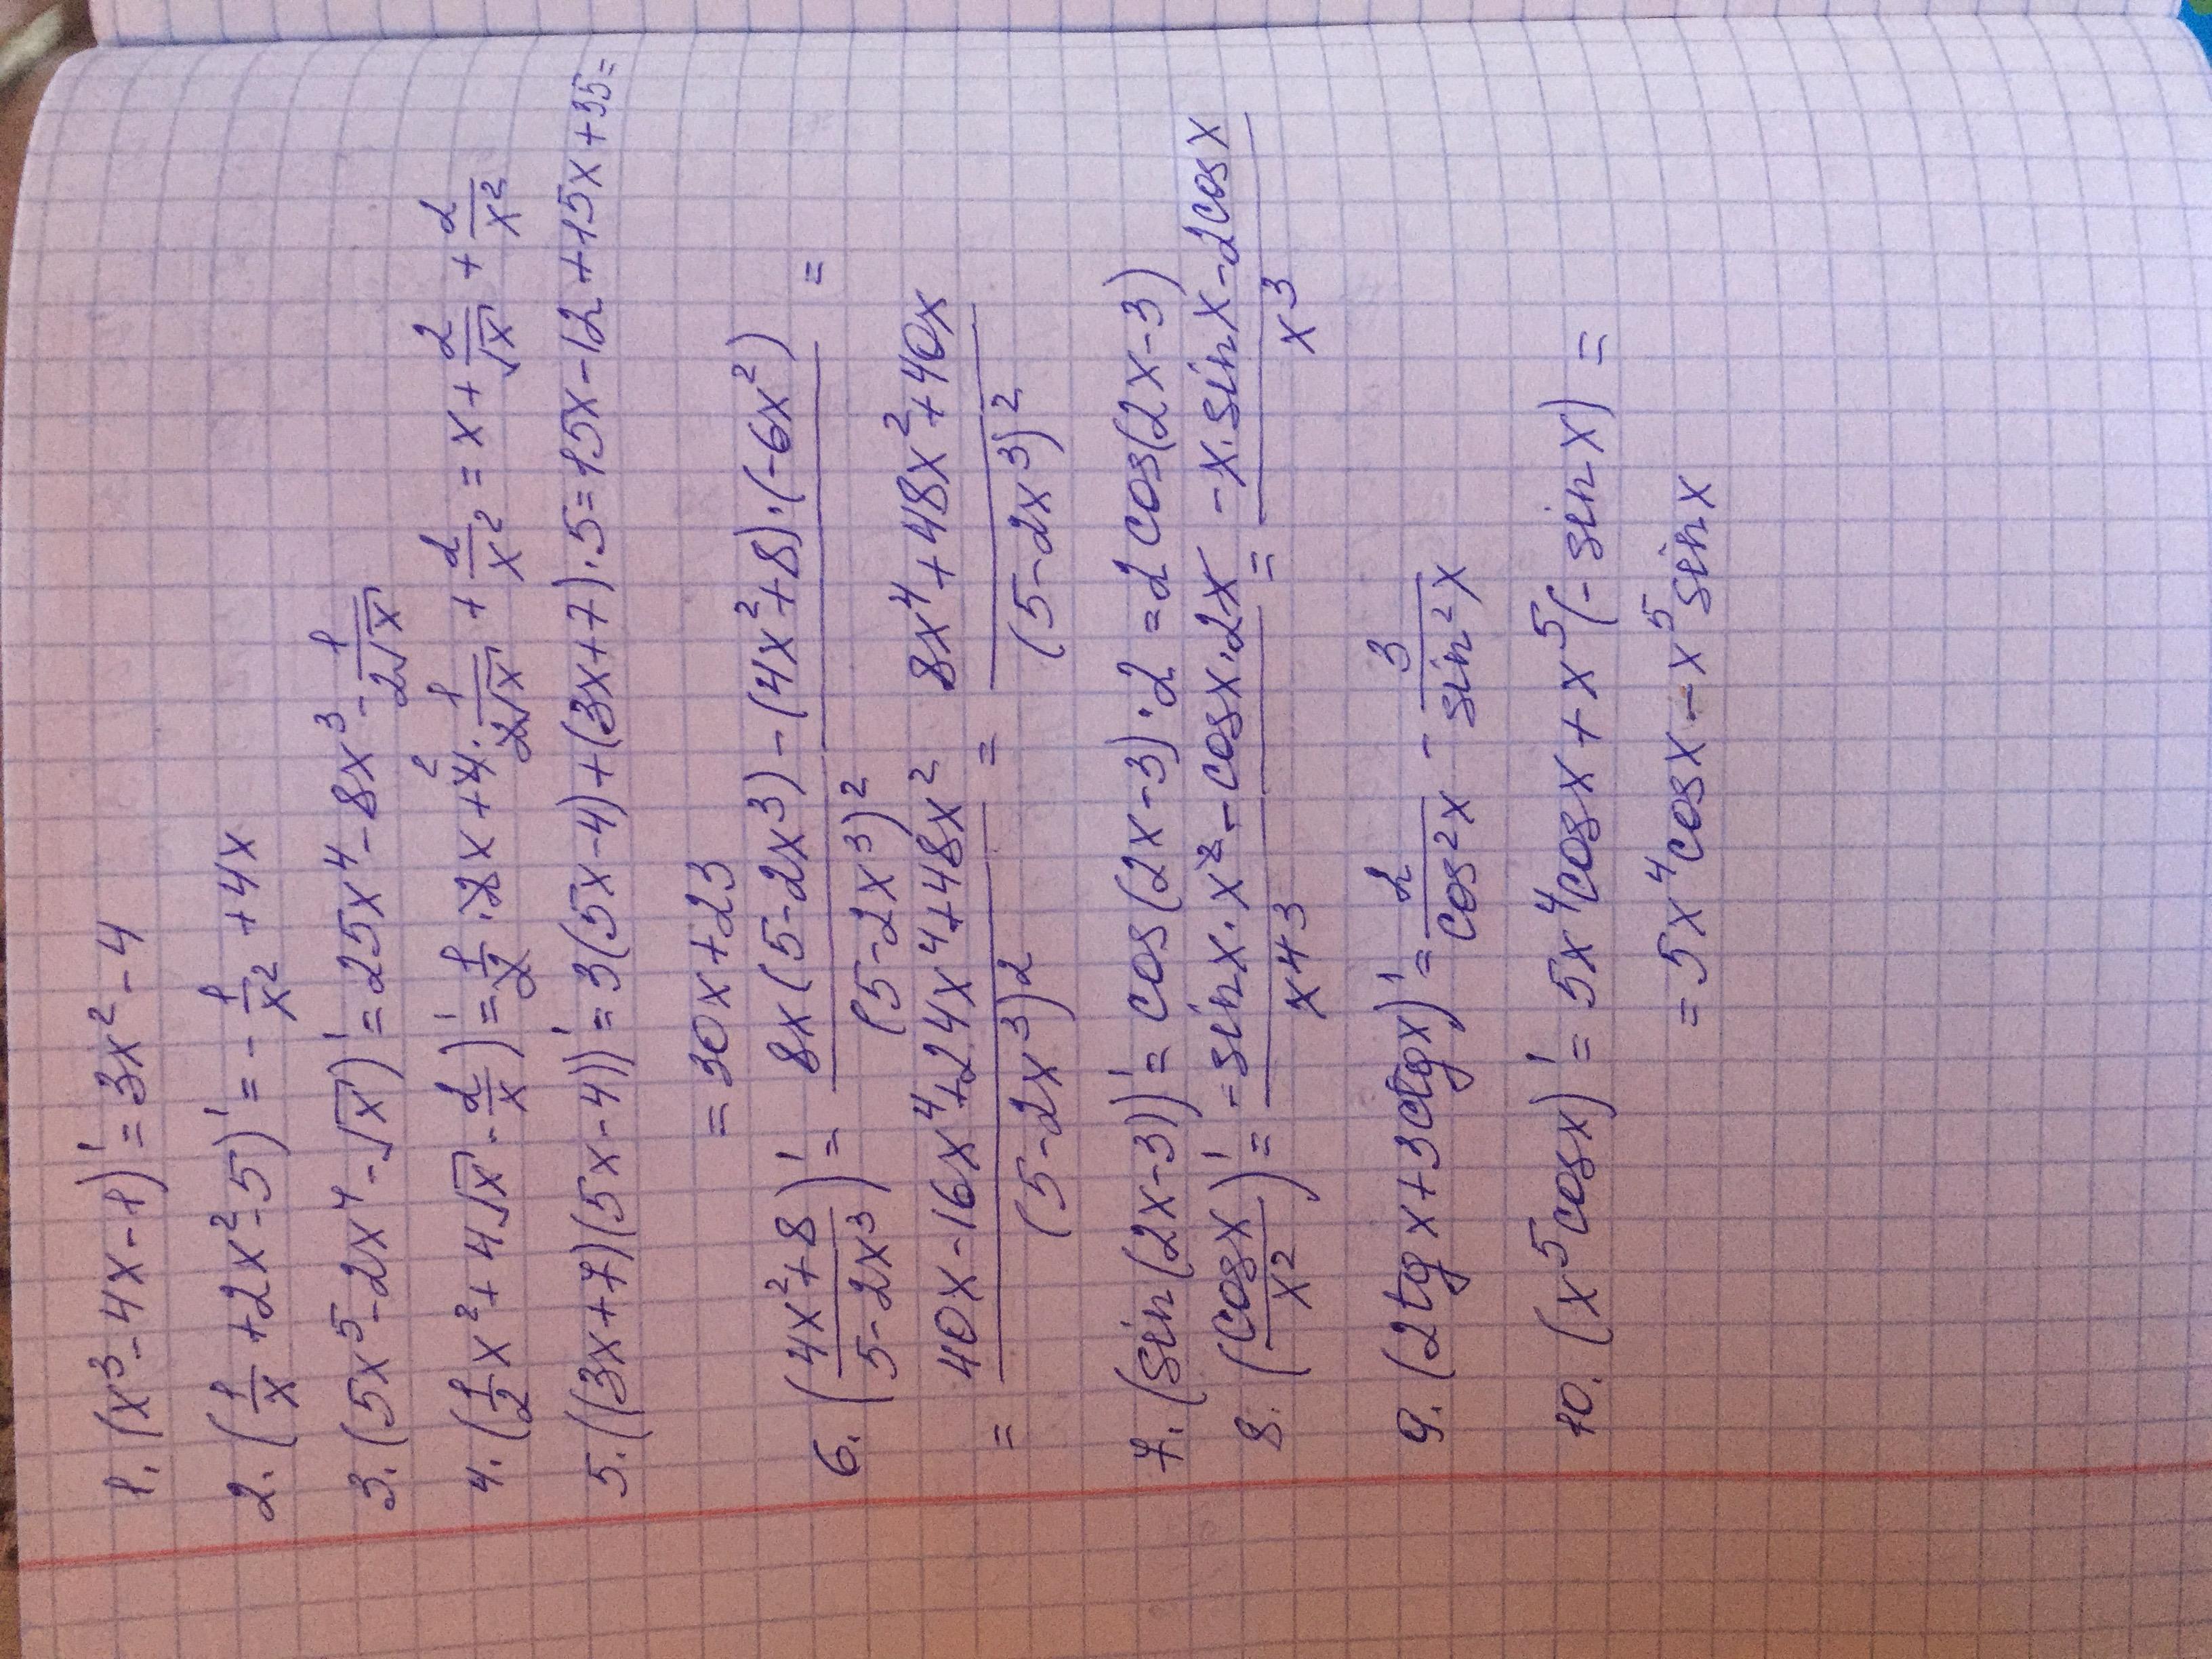 1. (x³-4x-1)' = 3x²-4
2. (1/x + 2x²-5)' = -1/x² + 4x
3. (5x⁵-2x⁴-√x)' = 25x⁴-8x³-1/(2√x)
4. (1/2 x² + 4√x - 2/x)' = 1/2 · 2x + 4 · 1/(2√x) + 2/x² = x + 2/√x + 2/x²
5. ((3x+7)(5x-4))' = 3(5x-4)+(3x+7)·5 = 15x-12+15x+35=
= 30x+23
6. ((4x²+8)/(5-2x³))' = (8x(5-2x³)-(4x²+8)·(-6x²))/(5-2x³)² =
= (40x-16x⁴+24x⁴+48x²)/(5-2x³)² = (8x⁴+48x²+40x)/(5-2x³)²
7. (sin(2x-3))' = cos(2x-3)·2 = 2cos(2x-3)
8. (cosx/x²)' = (-sinx·x²-cosx·2x)/x⁴ ³ = (-x·sinx-2cosx)/x³
9. (2tgx+3ctgx)' = 2/cos²x - 3/sin²x
10. (x⁵cosx)' = 5x⁴cosx+x⁵(-sinx) =
= 5x⁴cosx-x⁵sinx